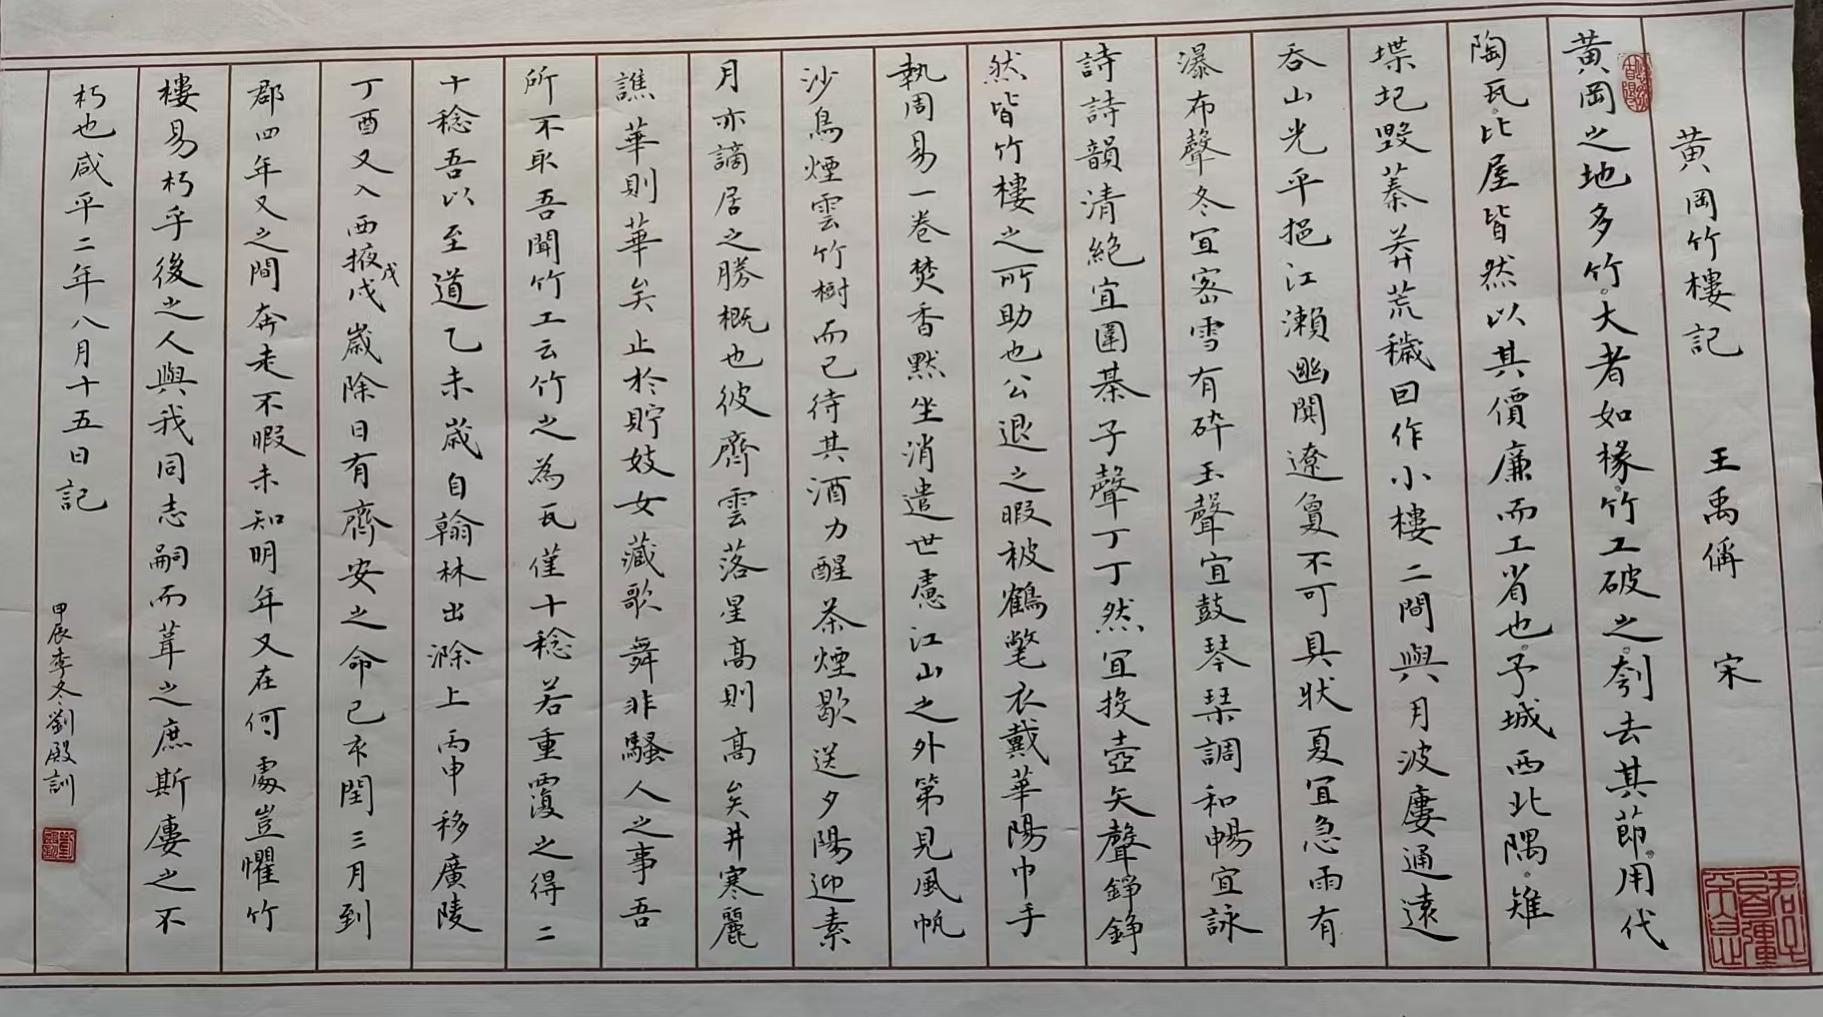 黃岡竹樓記 王禹偁 宋
黃岡之地多竹。大者如椽。竹工破之。刳去其節。用代
陶瓦。比屋皆然以其價廉而工省也。予城西北隅。雉
堞圮毀蓁莽荒穢因作小樓二間與月波樓通遠
吞山光平挹江瀨幽闃遼敻不可具狀夏宜急雨有
瀑布聲冬宜密雪有碎玉聲宜鼓琴琹調和暢宜詠
詩詩韻清絕宜圍棊子聲丁丁然宜投壺矢聲錚錚
然皆竹樓之所助也公退之暇被鶴氅衣戴華陽巾手
執周易一卷焚香默坐消遣世慮江山之外第見風帆
沙鳥煙雲竹樹而已待其酒力醒茶煙歇送夕陽迎素
月亦謫居之勝概也彼齊雲落星高則高矣井寒麗
譙華則華矣止於貯妓女藏歌舞非騷人之事吾
所不取吾聞竹工云竹之為瓦僅十稔若重覆之得二
十稔吾以至道乙未歲自翰林出滁上丙申移廣陵
丁酉又入西掖戊戌歲除日有齊安之命己亥閏三月到
郡四年又之間奔走不暇未知明年又在何處豈懼竹
樓易朽乎後之人與我同志嗣而葺之庶斯樓之不
朽也咸平二年八月十五日記
甲辰季冬劉殿訓